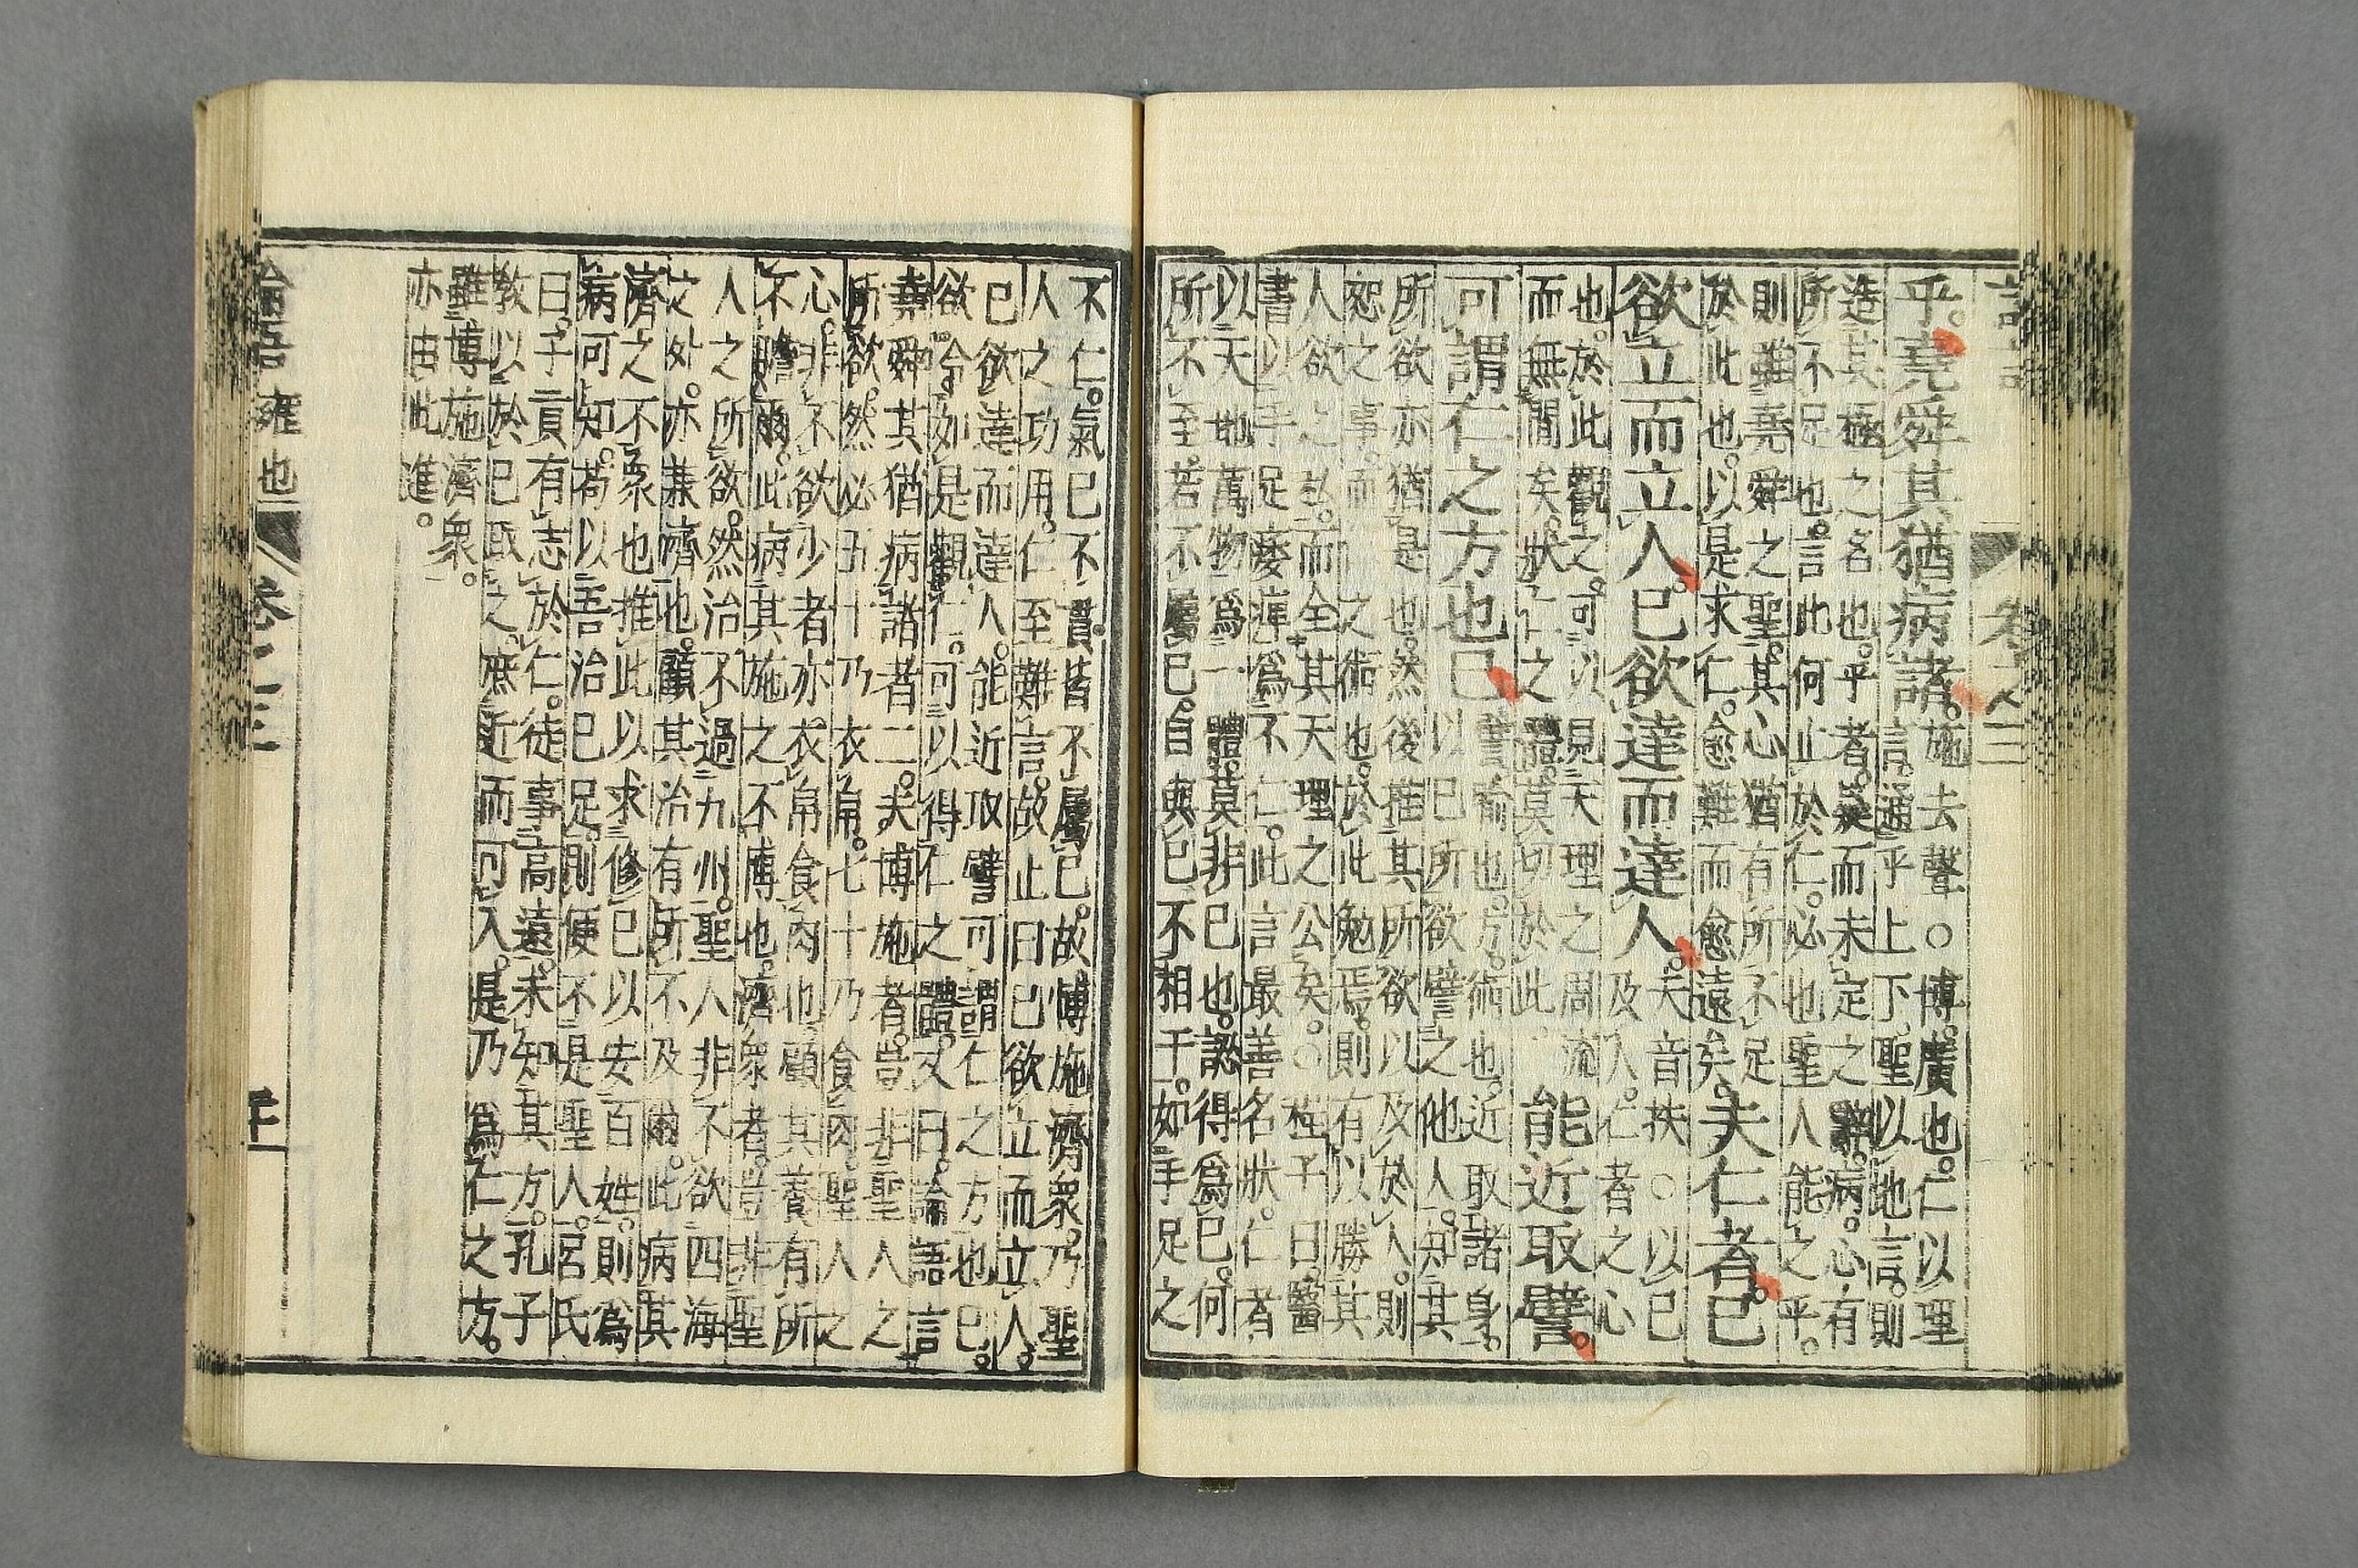 乎。堯舜其猶病諸。
施去聲○博。廣也。仁以理
言。通乎上下。聖以地言。則
造其極之名也。乎者。疑而未定之辭。病。心有
所不足也。言此何止於仁。必也聖人能之乎。
則雖堯舜之聖。其心猶有所不足
於此也。以是求仁。愈難而愈遠矣。
夫仁者。已
欲立而立人。已欲達而達人。
夫音扶○以已
及人。仁者之心
也。於此觀之。可以見天理之周流
而無閒矣。狀仁之體。莫切於此。
能近取譬。
可謂仁之方也已。
譬喻也。方。術也。近取諸身。
以已所欲譬之他人。知其
所欲亦猶是也。然後推其所欲以及於人。則
恕之事。而仁之術也。於此勉焉。則有以勝其
人欲之私。而全其天理之公矣。○程子曰。醫
書以手足痿痺爲不仁。此言最善名狀。仁者
以天地萬物爲一體。莫非已也。認得爲已。何
所不至。若不屬已。自與已不相干。如手足之
不仁。氣已不貫。皆不屬已。故博施濟衆。乃聖
人之功用。仁至難言。故止曰已欲立而立人。
已欲達而達人。能近取譬。可謂仁之方也已。
欲令如是觀仁。可以得仁之體。又曰。論語言
堯舜其猶病諸者二。夫博施者。豈非聖人之
所欲。然必五十乃衣帛。七十乃食肉。聖人之
心。非不欲少者亦衣帛食肉也。顧其養有所
不贍爾。此病其施之不博也。濟衆者。豈非聖
人之所欲。然治不過九州。聖人非不欲四海
之外。亦兼濟也。顧其治有所不及爾。此病其
濟之不衆也。推此以求。修已以安百姓。則爲
病可知。苟以吾治已足。則便不是聖人。呂氏
曰。子貢有志於仁。徒事高遠。未知其方。孔子
敎以於已取之。庶近而可入。是乃爲仁之方。
雖博施濟衆。
亦由此進。
論語 雍也 卷之三